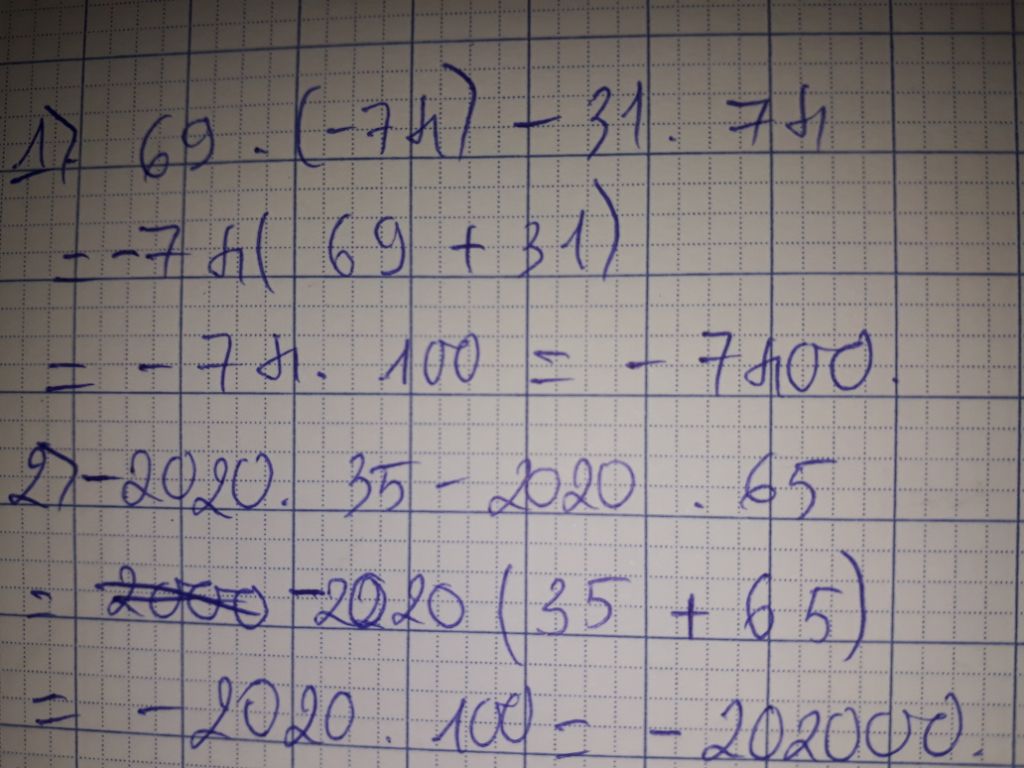 1) 69 . (-74) - 31. 74
= -74( 69 + 31)
= - 74. 100 = - 7400.
2) -2020. 35 - 2020 . 65
= -2020 (35 + 65)
= - 2020. 100 = - 202000.